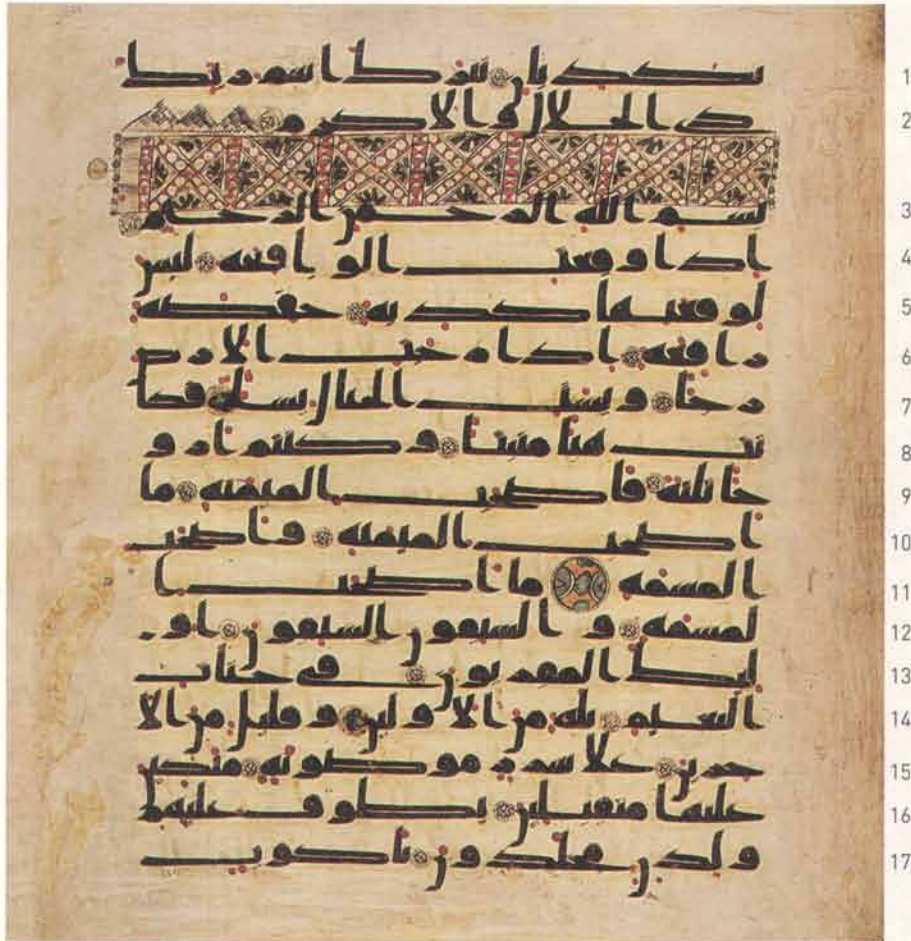 تكذبان تبرك اسم ربك 1
ذي الجلل والاكرم 2
بسم الله الرحمن الرحيم 3
اذا وقعت الواقعة ليس 4
لوقعتها كذبة خفضة 5
رافعة اذا رجت الارض 6
رجا وبست الجبال بسا فكا 7
نت هبا منبثا وكنتم ازو 8
جا ثلثة فاصحب الميمنة ما 9
اصحب الميمنة واصحب 10
المشمة ما اصحب ا 11
لمشمة والسبقون السبقون او 12
ليك المقربون في جنت 13
النعيم ثلة من الاولين وقليل من الا 14
خرين على سرر موضونة متكين 15
عليها متقبلين يطوف عليهم 16
ولدن مخلدون باكوب 17